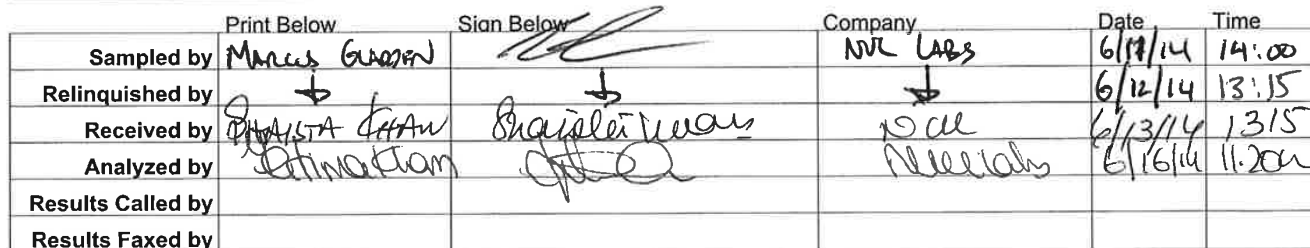 Print Below Sign Below Company Date Time
Sampled by MARCUS GLADDEN NVL LABS 6/11/14 14:00
Relinquished by 6/12/14 13:15
Received by SHAISTA KHAN NVL 6/13/14 1315
Analyzed by NVL Labs 6/16/14
Results Called by
Results Faxed by